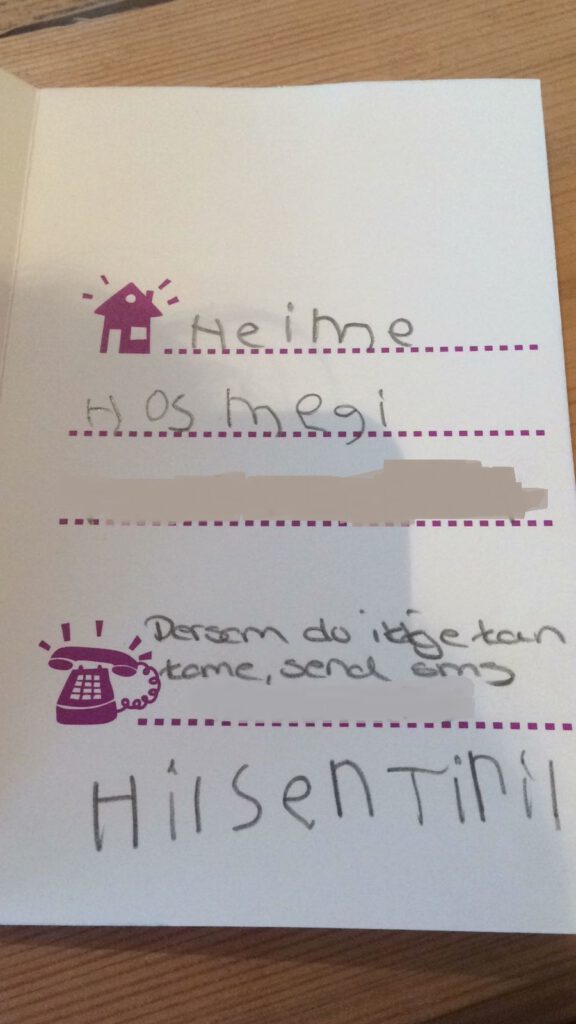 Heime
Hos megi
Dersom du ikkje kan
kome, send sms
Hilsen Tiril